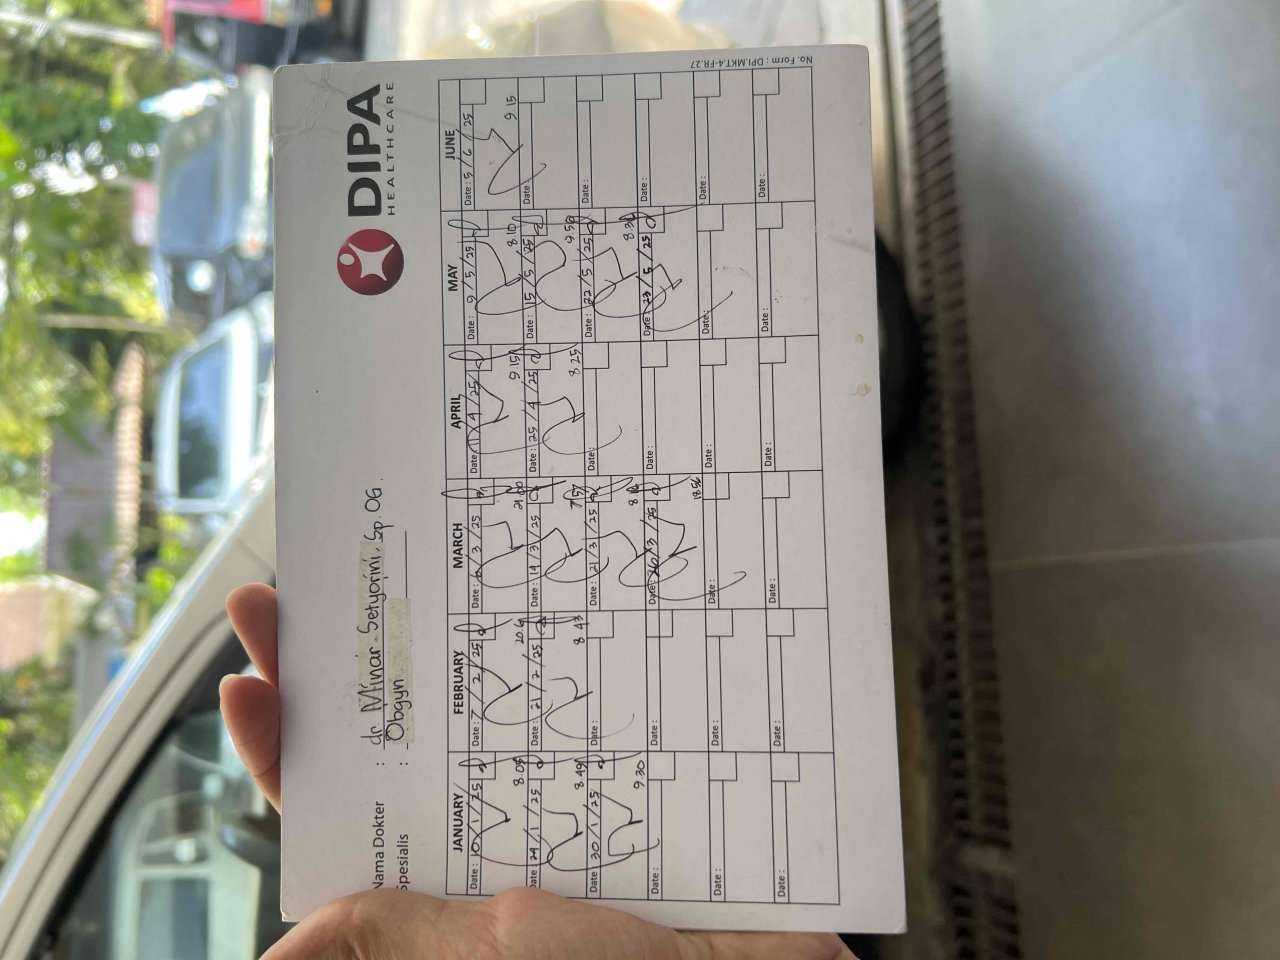 DIPA
HEALTHCARE
Nama Dokter : dr Minar Setyorini, Sp.OG.
Spesialis : Obgyn
JANUARY FEBRUARY MARCH APRIL MAY JUNE
Date: 10/1/25 Date: 7/2/25 Date: 6/3/25 Date: 11/4/25 Date: 9/5/25 Date: 5/6/25
8.05 21.00 9.15 8.10 9 15
Date: 24/1/25 Date: 21/2/25 Date: 14/3/25 Date: 25/4/25 Date: 15/5/25 Date:
8.49 8 43 7.57 8.25 9.50
Date: 30/1/25 Date: Date: 21/3/25 Date: Date: 22/5/25 Date:
9.30 8.30
Date: Date: Date: /3/25 Date: Date: 23/5/25 Date:
18.56
Date: Date: Date: Date: Date: Date:
Date: Date: Date: Date: Date: Date:
No. Form : DPI.MKT.4-FR.27